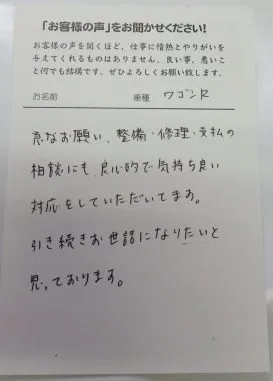 「お客様の声」をお聞かせください!
お客様の声を聞くほど、仕事に情熱とやりがいを
与えてくれるものはありません。良い事、悪いこ
と何でも結構です。ぜひよろしくお願い致します。
お名前 車種 ワゴンR
急なお願い、整備・修理・支払の
相談にも、良心的で気持ち良い
対応をしていただいてます。
引き続きお世話になりたいと
思っております。